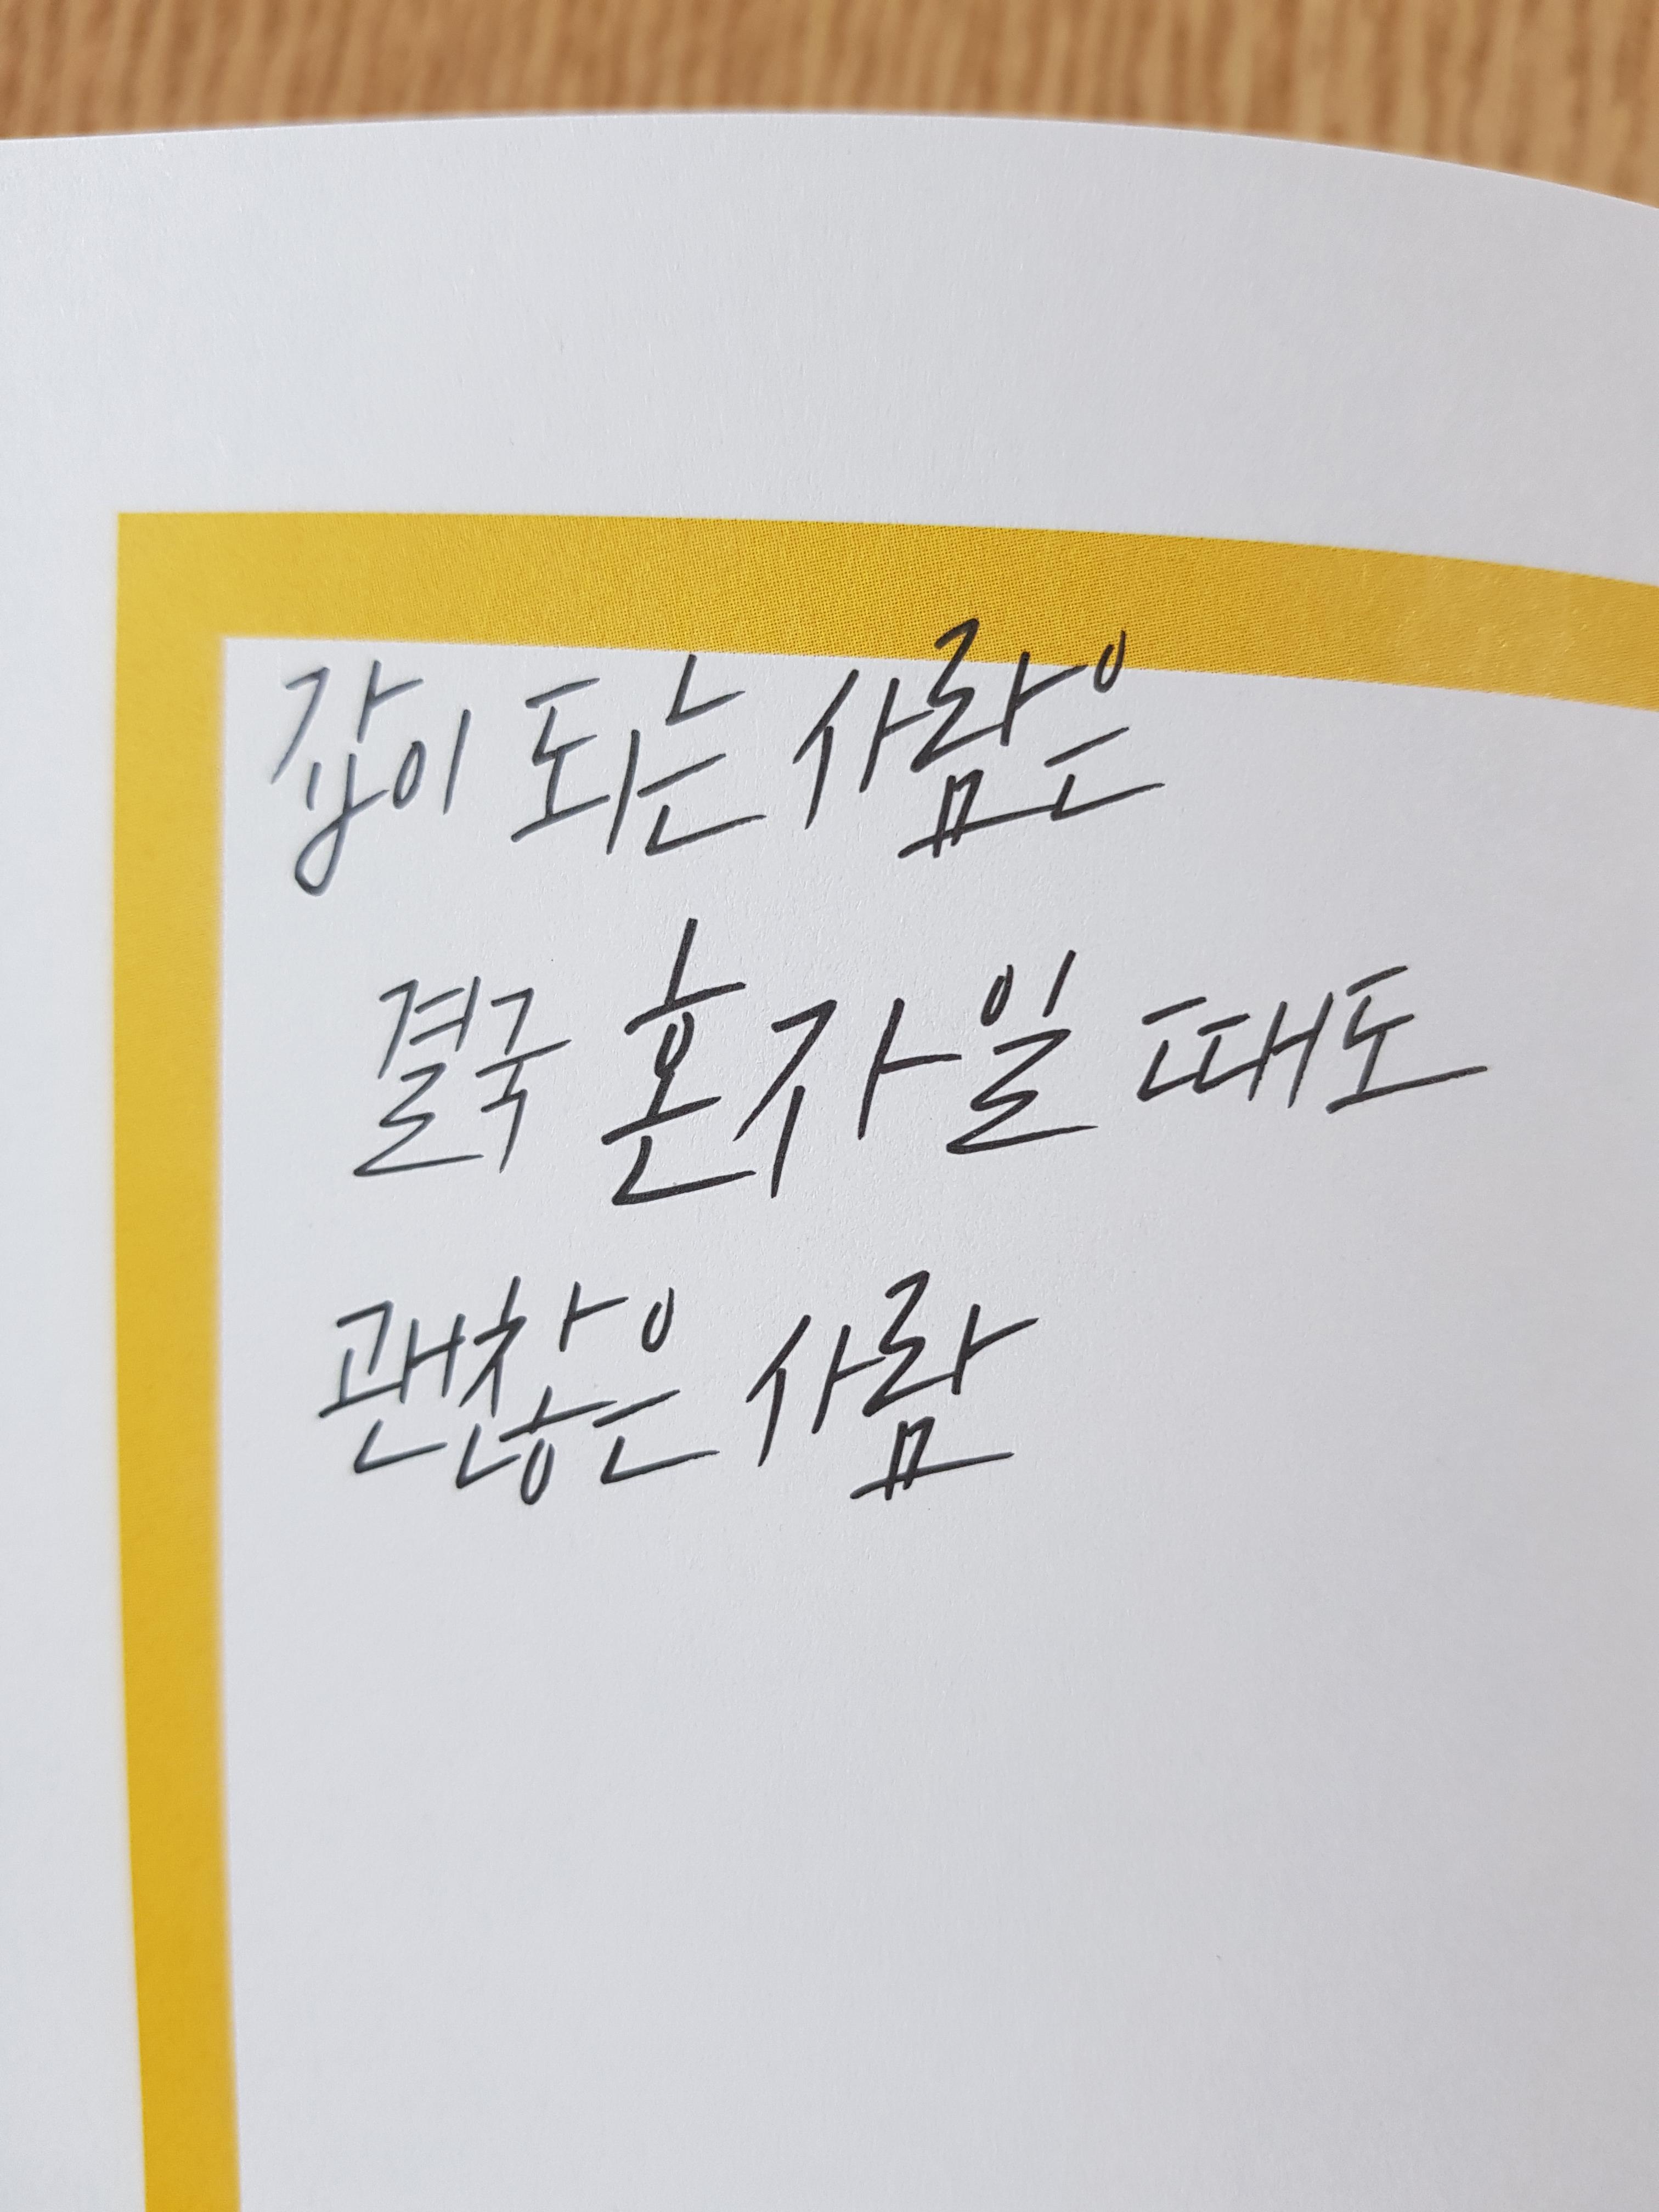 깊이 되는 사람은
결국 혼자일 때도
괜찮은 사람